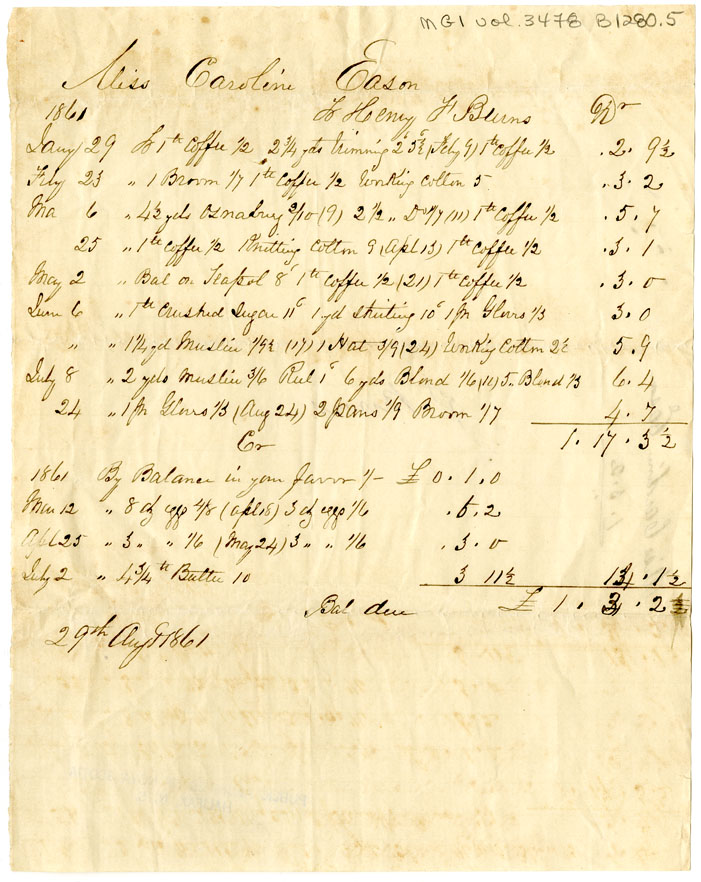 MG1 vol. 3478 B1280.5
Miss Caroline Eason
1861 To Henry F Burns Dr
Jany 29 To 1 lb Coffee 1/2 2 3/4 yds trimming 2d 5 1/2 (Feby 9) 1 lb Coffee 1/2 . 2 . 9 1/2
Feby 23 " 1 Broom 1/7 1 lb Coffee 1/2 Working Cotton 5 . 3 . 2
Mar 6 " 4 1/2 yds Osnaburg 2/10 (9) 2 1/2 " Do 1/7 (11) 1 lb Coffee 1/2 . 5 . 7
25 " 1 lb Coffee 1/2 Knitting Cotton 9 (Apl 13) 1 lb Coffee 1/2 . 3 . 1
May 2 " Bal on Teapot 8d 1 lb Coffee 1/2 (21) 1 lb Coffee 1/2 . 3 . 0
June 6 " 1 lb Crushed Sugar 11d 1 yd Shirting 10d 1 pr Gloves 1/3 3 . 0
" " 1 1/4 yd Muslin 1/9 1/2 (17) 1 Hat 3/9 (24) Working Cotton 2d 5 . 9
July 8 " 2 yds Muslin 3/6 Reel 1d 6 yds Blond 1/6 (10) 5 " Blond 1/3 6 . 4
24 " 1 pr Gloves 1/3 (Aug 24) 2 pans 1/9 Broom 1/7 4 . 7
1 . 17 . 3 1/2
Cr
1861 By Balance in your favor 1/- £ 0 . 1 . 0
Mar 12 " 8 dz eggs 3/8 (Apl 18) 3 dz eggs 1/6 . 5 . 2
Apl 25 " 3 " " 1/6 (May 24) 3 " " 1/6 . 3 . 0
July 2 " 4 3/4 lb Butter 10 3 11 1/2 14 . 1 1/2
Bal due £ 1 . 3 . 2
29th Augt 1861